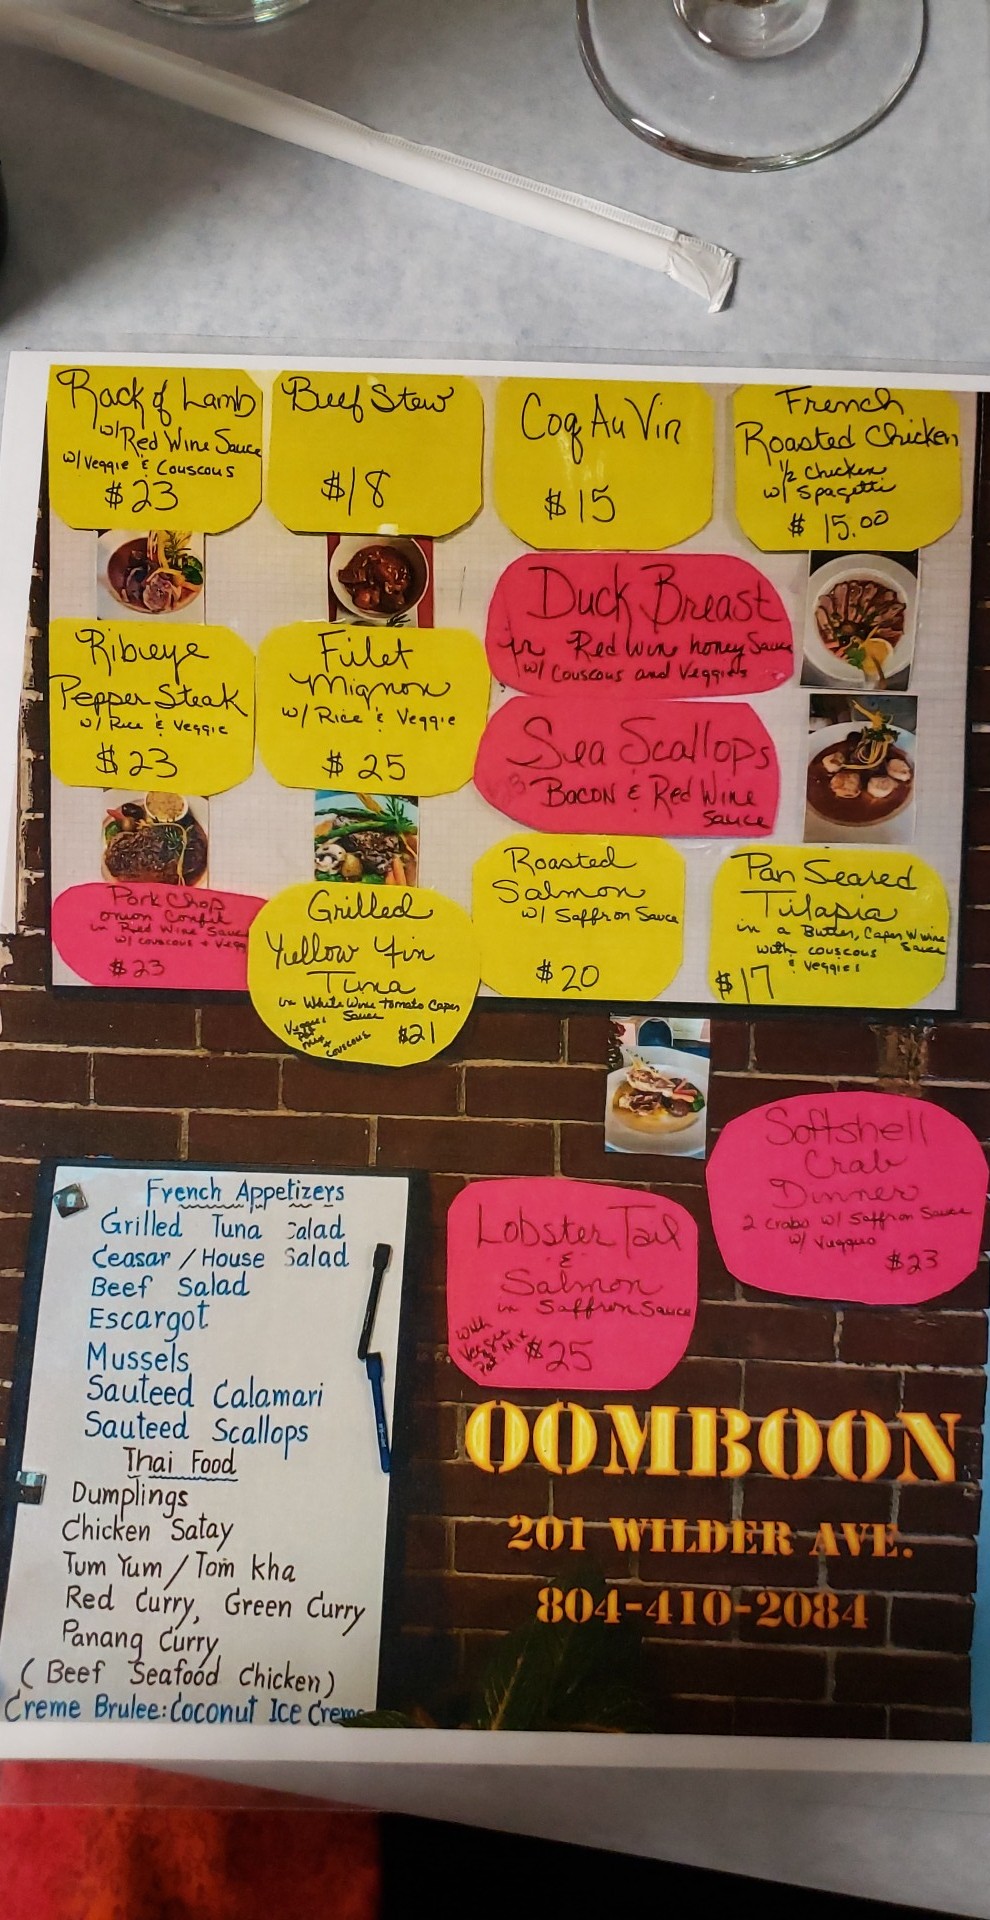 Rack of Lamb
w/ Red Wine Sauce
w/ Veggie & Couscous
$23
Beef Stew
$18
Coq Au Vin
$15
French
Roasted Chicken
1/2 Chicken
w/ Spagetti
$ 15.00
Ribieye
Pepper Steak
w/ Rice & Veggie
$23
Filet
Mignon
w/ Rice & Veggie
$25
Duck Breast
in Red wine honey Sauce
w/ Couscous and Veggies
Sea Scallops
Bacon & Red Wine
Sauce
Pork Chop
onion Confit
in Red Wine Sauce
w/ couscous + Vegg
$23
Grilled
Yellow Fin
Tuna
in White Wine tomato Caper
Sauce
Veggies
+ couscous
$21
Roasted
Salmon
w/ Saffron Sauce
$20
Pan Seared
Tilapia
in a Butter, Caper Wine
Sauce
with couscous
& Veggies
$17
Softshell
Crab
Dinner
2 crabs w/ Saffron Sauce
w/ Veggies
$23
Lobster Tail
&
Salmon
in Saffron Sauce
with
Veggie
Pot Mix
$25
French Appetizers
Grilled Tuna Salad
Ceasar / House Salad
Beef Salad
Escargot
Mussels
Sauteed Calamari
Sauteed Scallops
Thai Food
Dumplings
Chicken Satay
Tum Yum / Tom kha
Red Curry, Green Curry
Panang Curry
( Beef Seafood Chicken )
Creme Brulee: Coconut Ice Creme
OOMBOON
201 WILDER AVE.
804-410-2084